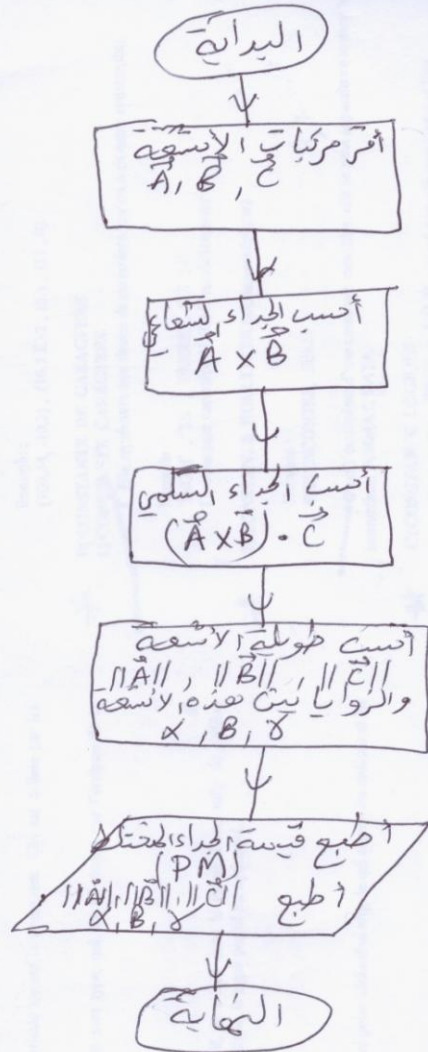 البداية
أقر مركبات الأشعة
A⃗, B⃗, C⃗
أحسب الجداء الشعاعي
A⃗ × B⃗
أحسب الجداء السلمي
(A⃗ × B⃗) · C⃗
أحسب طويلة الأشعة
||A⃗||, ||B⃗||, ||C⃗||
والزوايا بين هذه الأشعة
α, β, γ
أطبع قيمة الجداء المختلط
(PM)
أطبع ||A⃗||, ||B⃗||, ||C⃗||
α, β, γ
النهاية